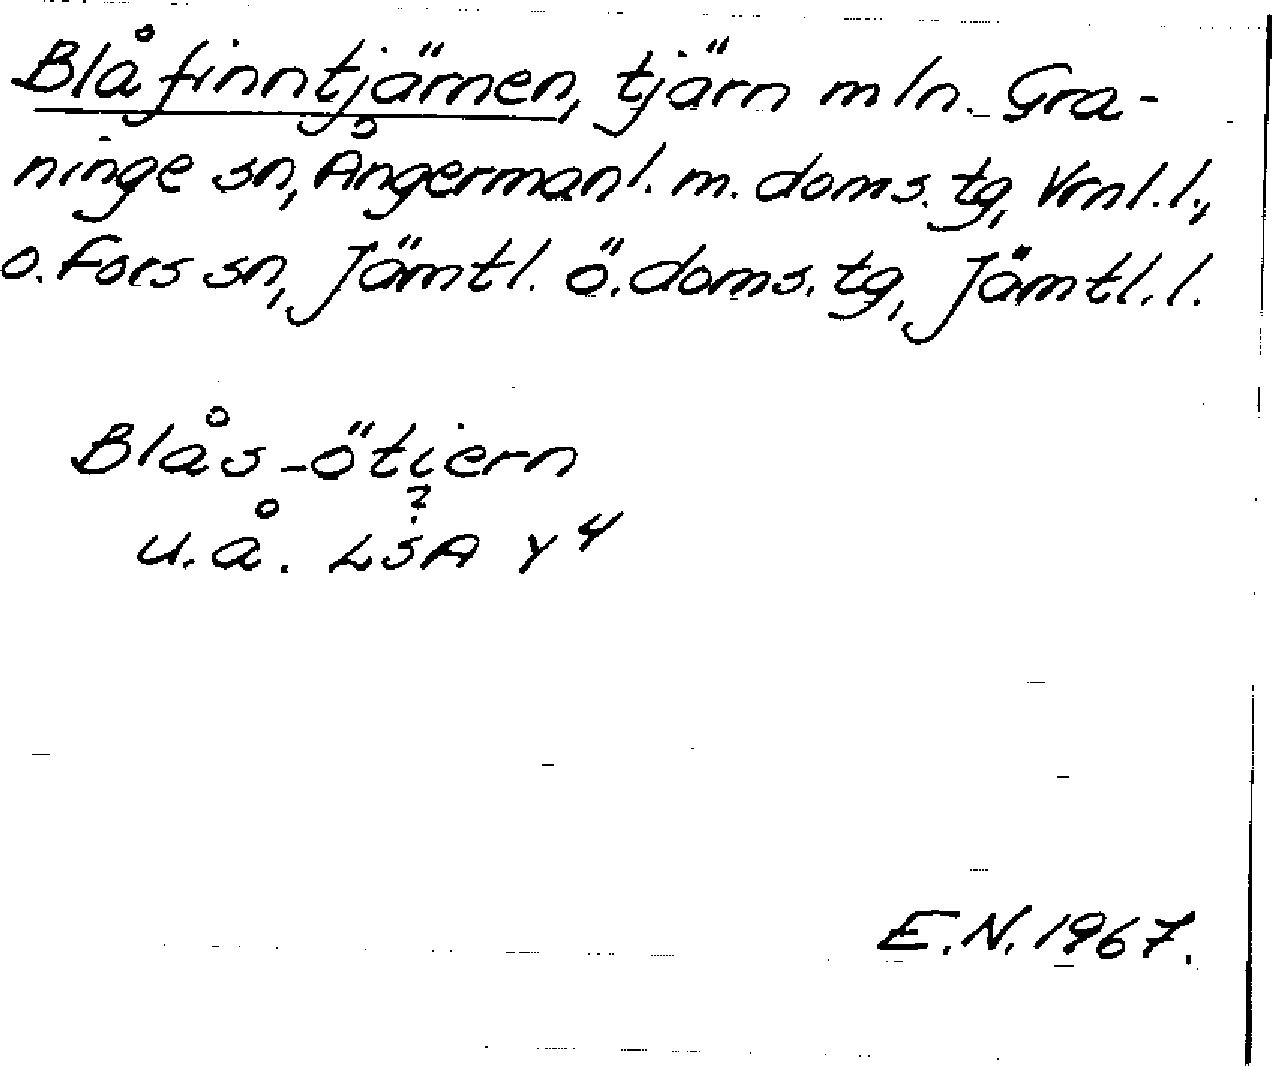 Blåfinntjärnen, tjärn mln. Gra-
ninge sn, Ångermanl. m. doms. tg, Vrnl. l.,
o. Fors sn, Jämtl. ö. doms. tg, Jämtl. l.
Blås-ötiern
?
u.å. LSA Y 4
E.N. 1967.